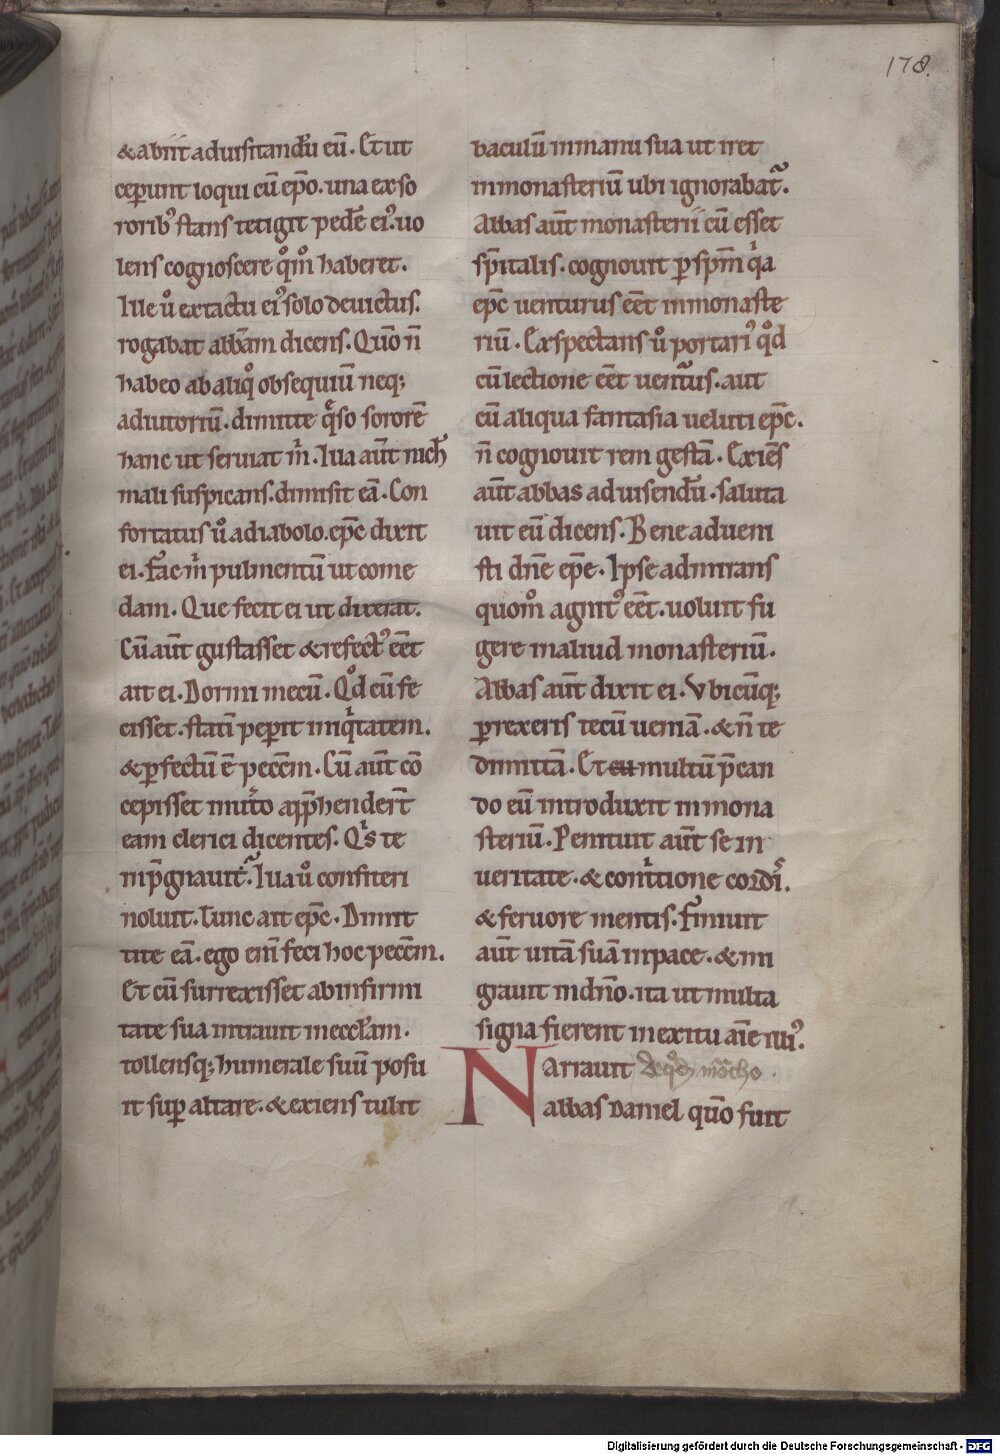 178.
&abiit aduisitandū eū. Et ut
ceꝑunt loqui cū ep̄o. una ex so
roribꝰ stans tetigit pedē eiꝰ. uo
lens cognoscere qͦm̄ haberet.
Ille ů ex tactu eiꝰ solo deuictus.
rogabat abb̄am dicens. Qūo n̄
habeo ab aliqͦ obsequiū neqꝫ
adiutoriū. dimitte q̄so sororē
hanc ut seruiat m̄. Illa aūt nich̄
mali suspicans. dimisit eā. Con
fortatus ů a diabolo. ep̄c dixit
ei. Fac m̄ pulmentū ut come
dam. Que fecit ei ut dixerat.
Cū aūt gustasset & refectꝰ eēt
ait ei. Dormi mecū. Qͦd cū fe
cisset. statī peꝑit iniqͥtatem.
& ꝑfectū ē pecc̄m. Cū aūt cō
cepisset mult̾o app̄hender̄t
eam clerici dicentes. Qͥs te
inp̄gnauit. Illa ů confiteri
noluit. Tunc ait ep̄c. Dimit
tite eā. ego eni feci hoc pecc̄m.
Et cū surrexisset ab infirmi
tate sua intrauit in eccl̄am.
tollensqꝫ humerale suū posu
it suꝑ altare. & exiens tulit
baculū in manu sua ut iret
in monasteriū ubi ignorabat̾.
Abbas aūt monasterii cū esset
sp̄italis. cognouit ꝑ sp̄m qͥa
ep̄c uenturus eēt in monaste
riū. Exspectans ů portariꝰ qͦd
cū lectione eēt uentͣus. aut
cū aliqua fantasia ueluti ep̄c.
n̄ cognouit rem gestā. Exiēs
aūt abbas ad uisendū. saluta
uit eū dicens. Bene adueni
sti dn̄e ep̄e. Ipse admirans
quom̊ agnitꝰ eēt. uoluit fu
gere in aliud monasteriū.
Abbas aūt dixit ei. Vbicūqꝫ
ꝑrexeris tecū ueniā. & n̄ te
dimittā. Et eu multū p̄can
do eū introduxit in mona
steriū. Penituit aūt se in
ueritate. & contͥtione cordis̾.
& feruore mentis. Finiuit
aūt uitā suā in pace. & mi
grauit in dn̄o. ita ut multa
signa fierent in exitu aīe illiꝰ.
Narrauit de qͦd̄ mōcho
abbas Daniel qūo fuit
Digitalisierung gefördert durch die Deutsche Forschungsgemeinschaft - DFG